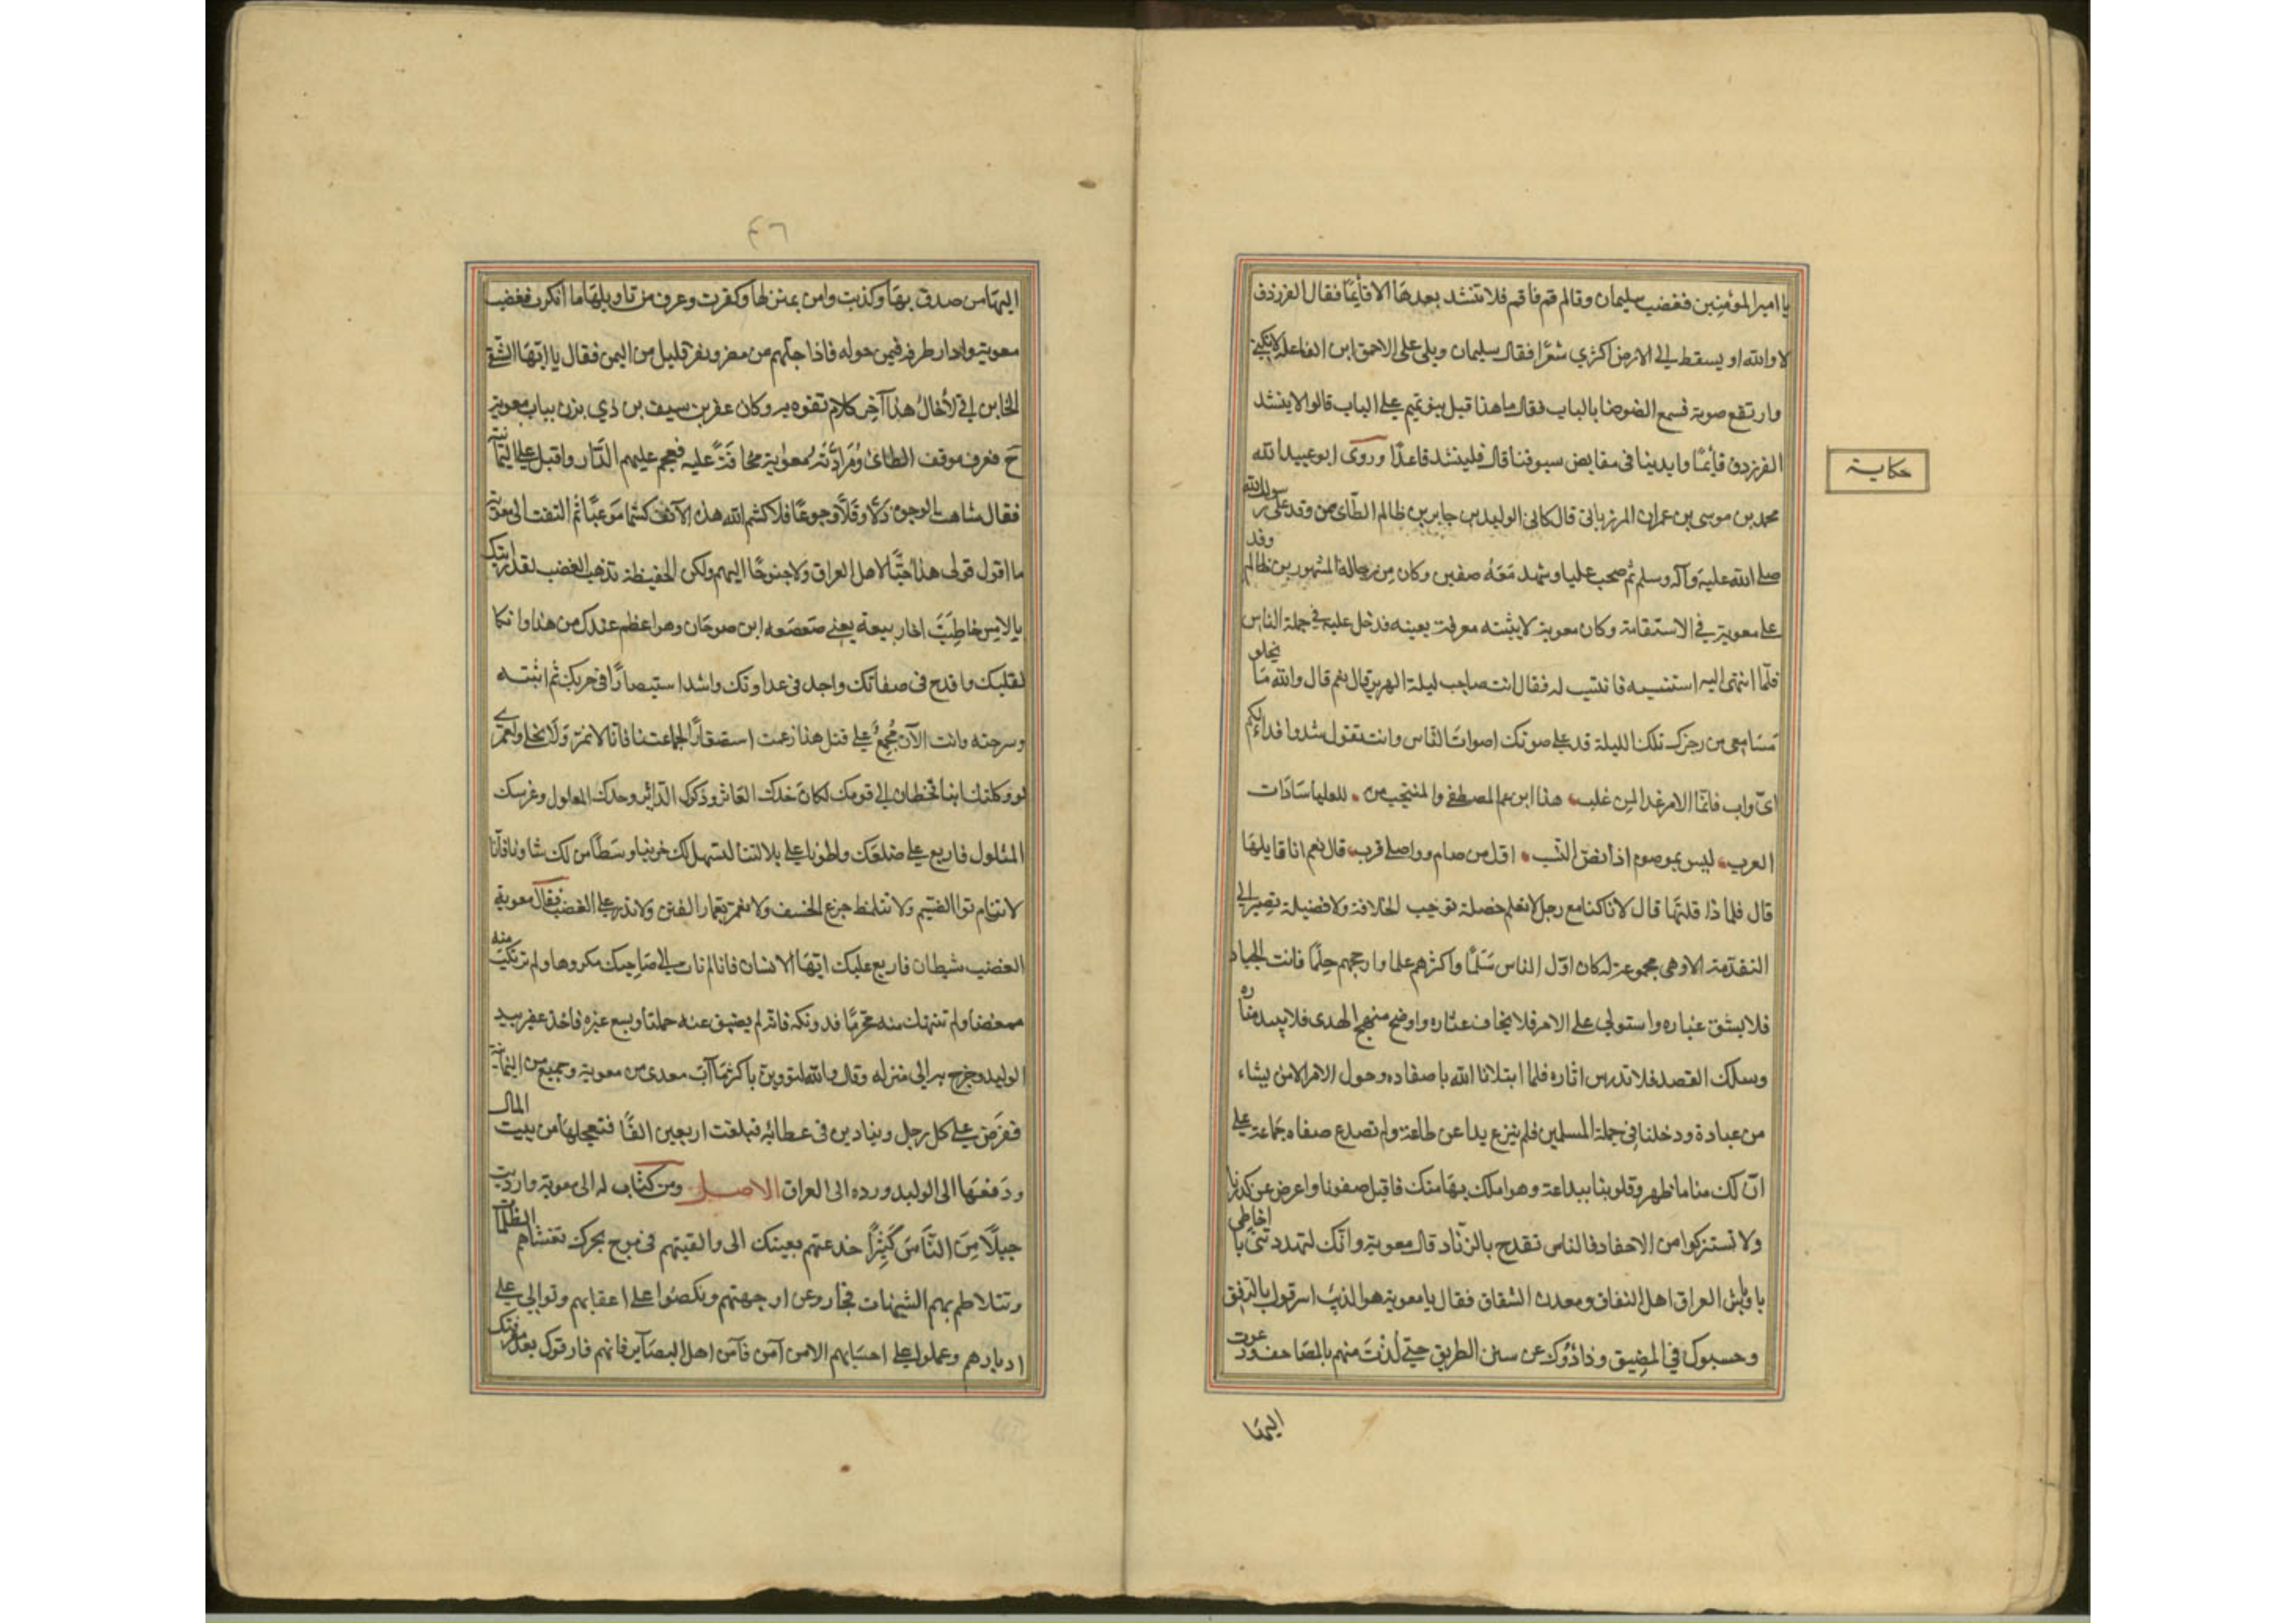 يا امير المؤمنين فغضب سليمان وقال قم فاقم فلا تنشد بعدها الا قائما فقال الفرزدق
لا والله او يسقط الى الارض اكثري شعرا فقال سليمان ويلي على الاحمق ابن الفاعلة لا يكنى
وارتفع صوته فسمع الضوضا بالباب فقال ما هذا قيل بنو تميم على الباب قالوا لا ينشد
الفرزدق قائما وايدينا فى مقابض سيوفنا قال فلينشد قاعدا وروى ابو عبيد الله
حكاية
محمد بن موسى بن عمران المرزبانى قال كان الوليد بن جابر بن ظالم الطائى ممن وفد على رسول الله
صلى الله عليه وآله وسلم ثم صحب عليا وشهد معه صفين وكان من رجاله المشهورين ثم وفد
على معوية فى الاستقامة وكان معوية لا يثبته معرفة بعينه فدخل عليه فى جملة الناس
فلما انتهى اليه استنسبه فانتسب له فقال انت صاحب ليلة الهرير قال نعم قال والله ما يخلو
مسامعى من رجزك تلك الليلة قد على صوتك اصوات الناس وانت تقول شدوا فداء لكم
اى واب فانما الامر غدا لمن غلب هذا ابن عم المصطفى والمنتجب من للعليا سادات
العرب ليس بموصوم اذا نص النسب اول من صام وواصلى قرب قال نعم انا قايلها
قال فلما ذا قلتها قال لانا كنا مع رجل لا نعلم خصلة توجب الخلافة ولا فضيلة تصير الى
التقدمة الا وهى مجموعة له كان اول الناس سلما واكثرهم علما وارجحهم حلما فانت الجياد
فلا يشق غباره واستولى على الامد فلا يخاف عثاره واوضح منهج الهدى فلا يبيد مناره
وسلك القصد فلا تدرس اثاره فلما ابتلانا الله بافتقاده وحول الامر الى من يشاء
من عباده ودخلنا فى جملة المسلمين فلم ننزع يدا عن طاعة ولم نصدع صفاه جماعة على
ان لك منا ما ظهر وقلوبنا بيد الله وهو املك بها منك فاقبل صفونا واعرض عن كدرنا
ولا تستثر كوامن الاحقاد فالناس تقدح بالزناد قال معوية وانك لتهددنى يا اخا طى
باوباش العراق اهل النفاق ومعدن الشقاق فقال يا معوية هم الذين اشرقوك بالريق
وحبسوك فى المضيق وذادوك عن سنن الطريق حتى لذت منهم بالمصاحف ودعوت
اليها
٤٦
اليها من صدق بها وكذبت وامن بمنزلها وكفرت وعرف من تاويلها ما انكرت فغضب
معوية وادار طرفه فيمن حوله فاذا جلهم من مضر ونفر قليل من اليمن فقال يا ايها الشقى
الخاين انى لاخال هذا آخر كلام تفوه به وكان عفير بن سيف بن ذى يزن بباب معوية
ح فعرف موقف الطائى ومراد معوية فخافه عليه فهجم عليهم الدار واقبل على اليمانية
فقال شاهت الوجوه ذلا وقلا وجوعا فلا كشم الله هذه الآنف كشما موعبا ثم التفت الى معوية
ما اقول قولى هذا حبا لاهل العراق ولا جنوحا اليهم ولكن الحفيظة تذهب الغضب لقد رايتك
بالامس خاطبت اخا ربيعة يعنى صعصعه ابن صوحان وهو اعظم عندك من هذا وانكا
لقلبك واقدح فى صفاتك واجد فى عداوتك واشد استبصارا فى حربك ثم اثبته
وسرحته وانت الآن مجمع على قتل هذا زعمت استصغارا لجماعتنا فانا لا نمر ولا نحلى ولعمرى
لو وكلتك ابنا قحطان الى قومك لكان جدك العاثر وذكرك الداثر وحدك المفلول وعرشك
المثلول فاربع على ضلعك واطونا على بلالتنا ليسهل لك حزننا
لا نرام بوا الضيم ولا نتلمظ جرع الخسف ولا نغمر بغمار الفتن ولا نذر على الغضب فقال معوية
الغضب شيطان فاربع عليك ايها الانسان فانا لم نات الى صاحبك مكروها ولم نرتكب منه
مغضبا ولم ننتهك منه محرما فدونكه فانه لم يضق عنه حلمنا ويسع غيره فاخذ عفير بيد
الوليد وخرج به الى منزله وقال والله لتؤوبن باكثر مما آب معدى من معوية وجمع من اليمانية
ففرض على كل رجل دينارين فى عطائه فبلغت اربعين الفا فتعجلها من بيت المال
ودفعها الى الوليد ورده الى العراق الاصل ومن كتاب له الى معوية وارديت
جيلا من الناس كثيرا خدعتهم بغيك الى والقيتهم فى موج بحرك تغشاهم الظلمات
وتتلاطم بهم الشبهات فجاروا عن وجهتهم ونكصوا على اعقابهم وتولوا على
ادبارهم وعملوا على احسابهم الا من آمن فآمن اهل البصآير فانهم فارقوك بعد معرفتك